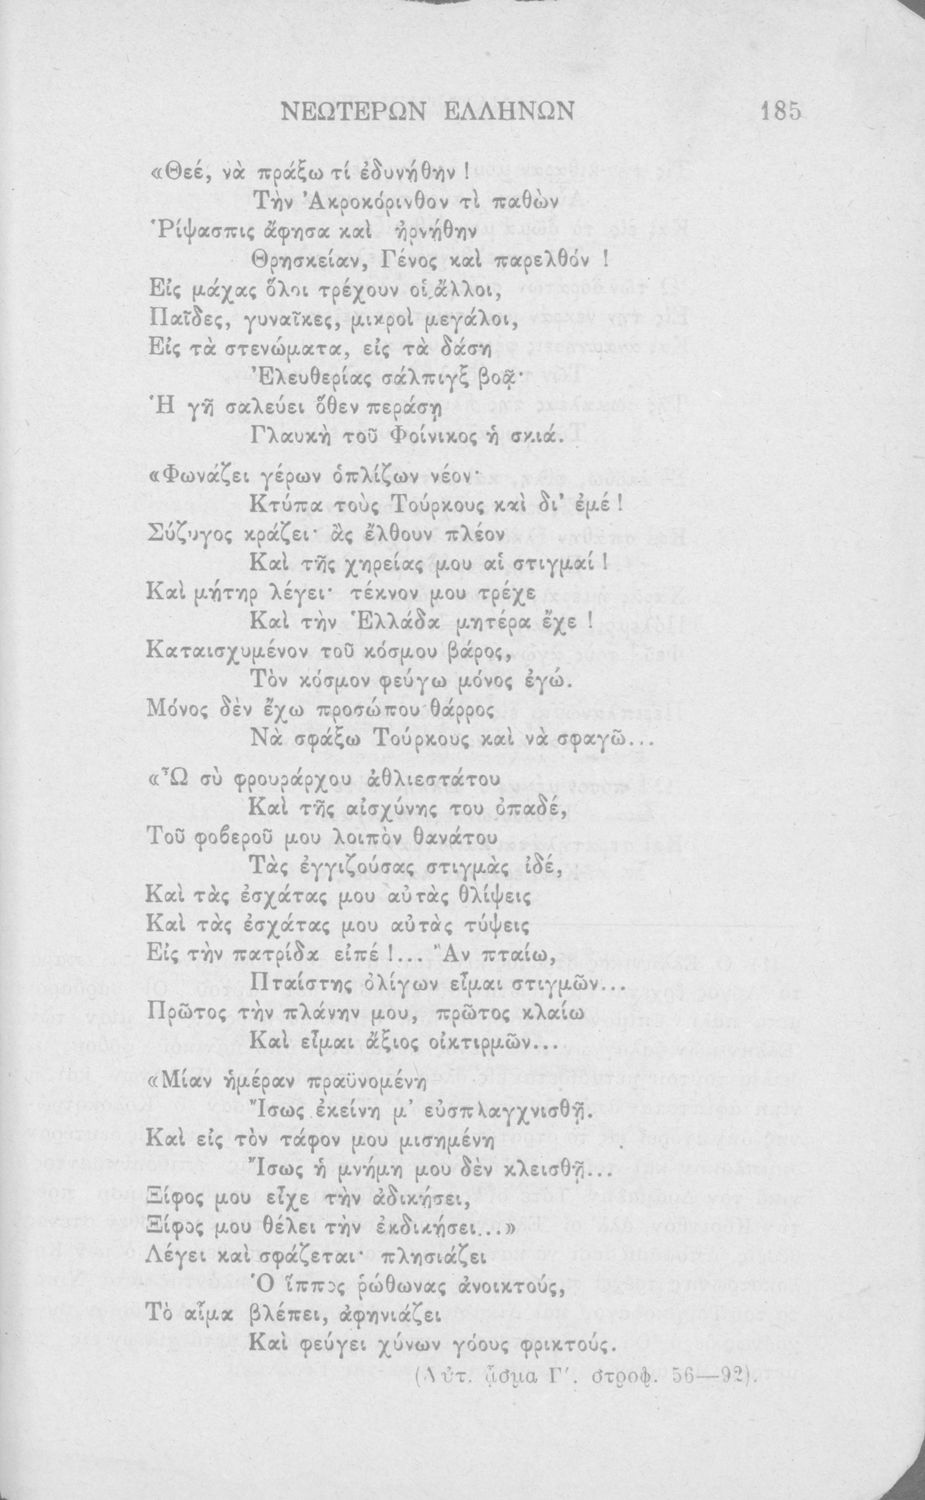 ΝΕΩΤΕΡΩΝ ΕΛΛΗΝΩΝ 185
«Θεέ, νὰ πράξω τί ἐδυνήθην !
Τὴν Ἀκροκόρινθον τὶ παθὼν
Ῥίψασπις ἄφησα καὶ ἠρνήθην
Θρησκείαν, Γένος καὶ παρελθόν !
Εἰς μάχας ὅλοι τρέχουν οἱ ἄλλοι,
Παῖδες, γυναῖκες, μικροὶ μεγάλοι,
Εἰς τὰ στενώματα, εἰς τὰ δάση
Ἐλευθερίας σάλπιγξ βοᾷ·
Ἡ γῆ σαλεύει ὅθεν περάση
Γλαυκὴ τοῦ Φοίνικος ἡ σκιά.
«Φωνάζει γέρων ὁπλίζων νέον·
Κτύπα τοὺς Τούρκους καὶ δι' ἐμέ !
Σύζυγος κράζει· ἂς ἔλθουν πλέον
Καὶ τῆς χηρείας μου αἱ στιγμαί !
Καὶ μήτηρ λέγει· τέκνον μου τρέχε
Καὶ τὴν Ἑλλάδα μητέρα ἔχε !
Καταισχυμένον τοῦ κόσμου βάρος,
Τὸν κόσμον φεύγω μόνος ἐγώ.
Μόνος δὲν ἔχω προσώπου θάρρος
Νὰ σφάξω Τούρκους καὶ νὰ σφαγῶ...
«Ὦ σὺ φρουράρχου ἀθλιεστάτου
Καὶ τῆς αἰσχύνης του ὀπαδέ,
Τοῦ φοβεροῦ μου λοιπὸν θανάτου
Τὰς ἐγγιζούσας στιγμὰς ἰδέ,
Καὶ τὰς ἐσχάτας μου αὐτὰς θλίψεις
Καὶ τὰς ἐσχάτας μου αὐτὰς τύψεις
Εἰς τὴν πατρίδα εἰπέ !... Ἂν πταίω,
Πταίστης ὀλίγων εἶμαι στιγμῶν...
Πρῶτος τὴν πλάνην μου, πρῶτος κλαίω
Καὶ εἶμαι ἄξιος οἰκτιρμῶν...
«Μίαν ἡμέραν πραϋνομένη
Ἴσως ἐκείνη μ' εὐσπλαγχνισθῇ.
Καὶ εἰς τὸν τάφον μου μισημένη
Ἴσως ἡ μνήμη μου δὲν κλεισθῇ...
Ξίφος μου εἶχε τὴν ἀδικήσει,
Ξίφος μου θέλει τὴν ἐκδικήσει...»
Λέγει καὶ σφάζεται· πλησιάζει
Ὁ ἵππος ῥώθωνας ἀνοικτούς,
Τὸ αἷμα βλέπει, ἀφηνιάζει
Καὶ φεύγει χύνων γόους φρικτούς.
(Αὐτ. ᾆσμα Γ'. στροφ. 56—92).